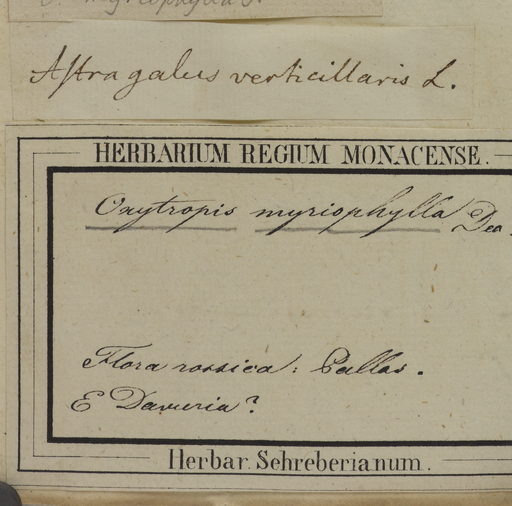 O. myriophylla
Astragalus verticillaris L.
HERBARIUM REGIUM MONACENSE.
Oxytropis myriophylla Dec.
Flora rossica: Pallas.
E Davuria?
Herbar. Schreberianum.